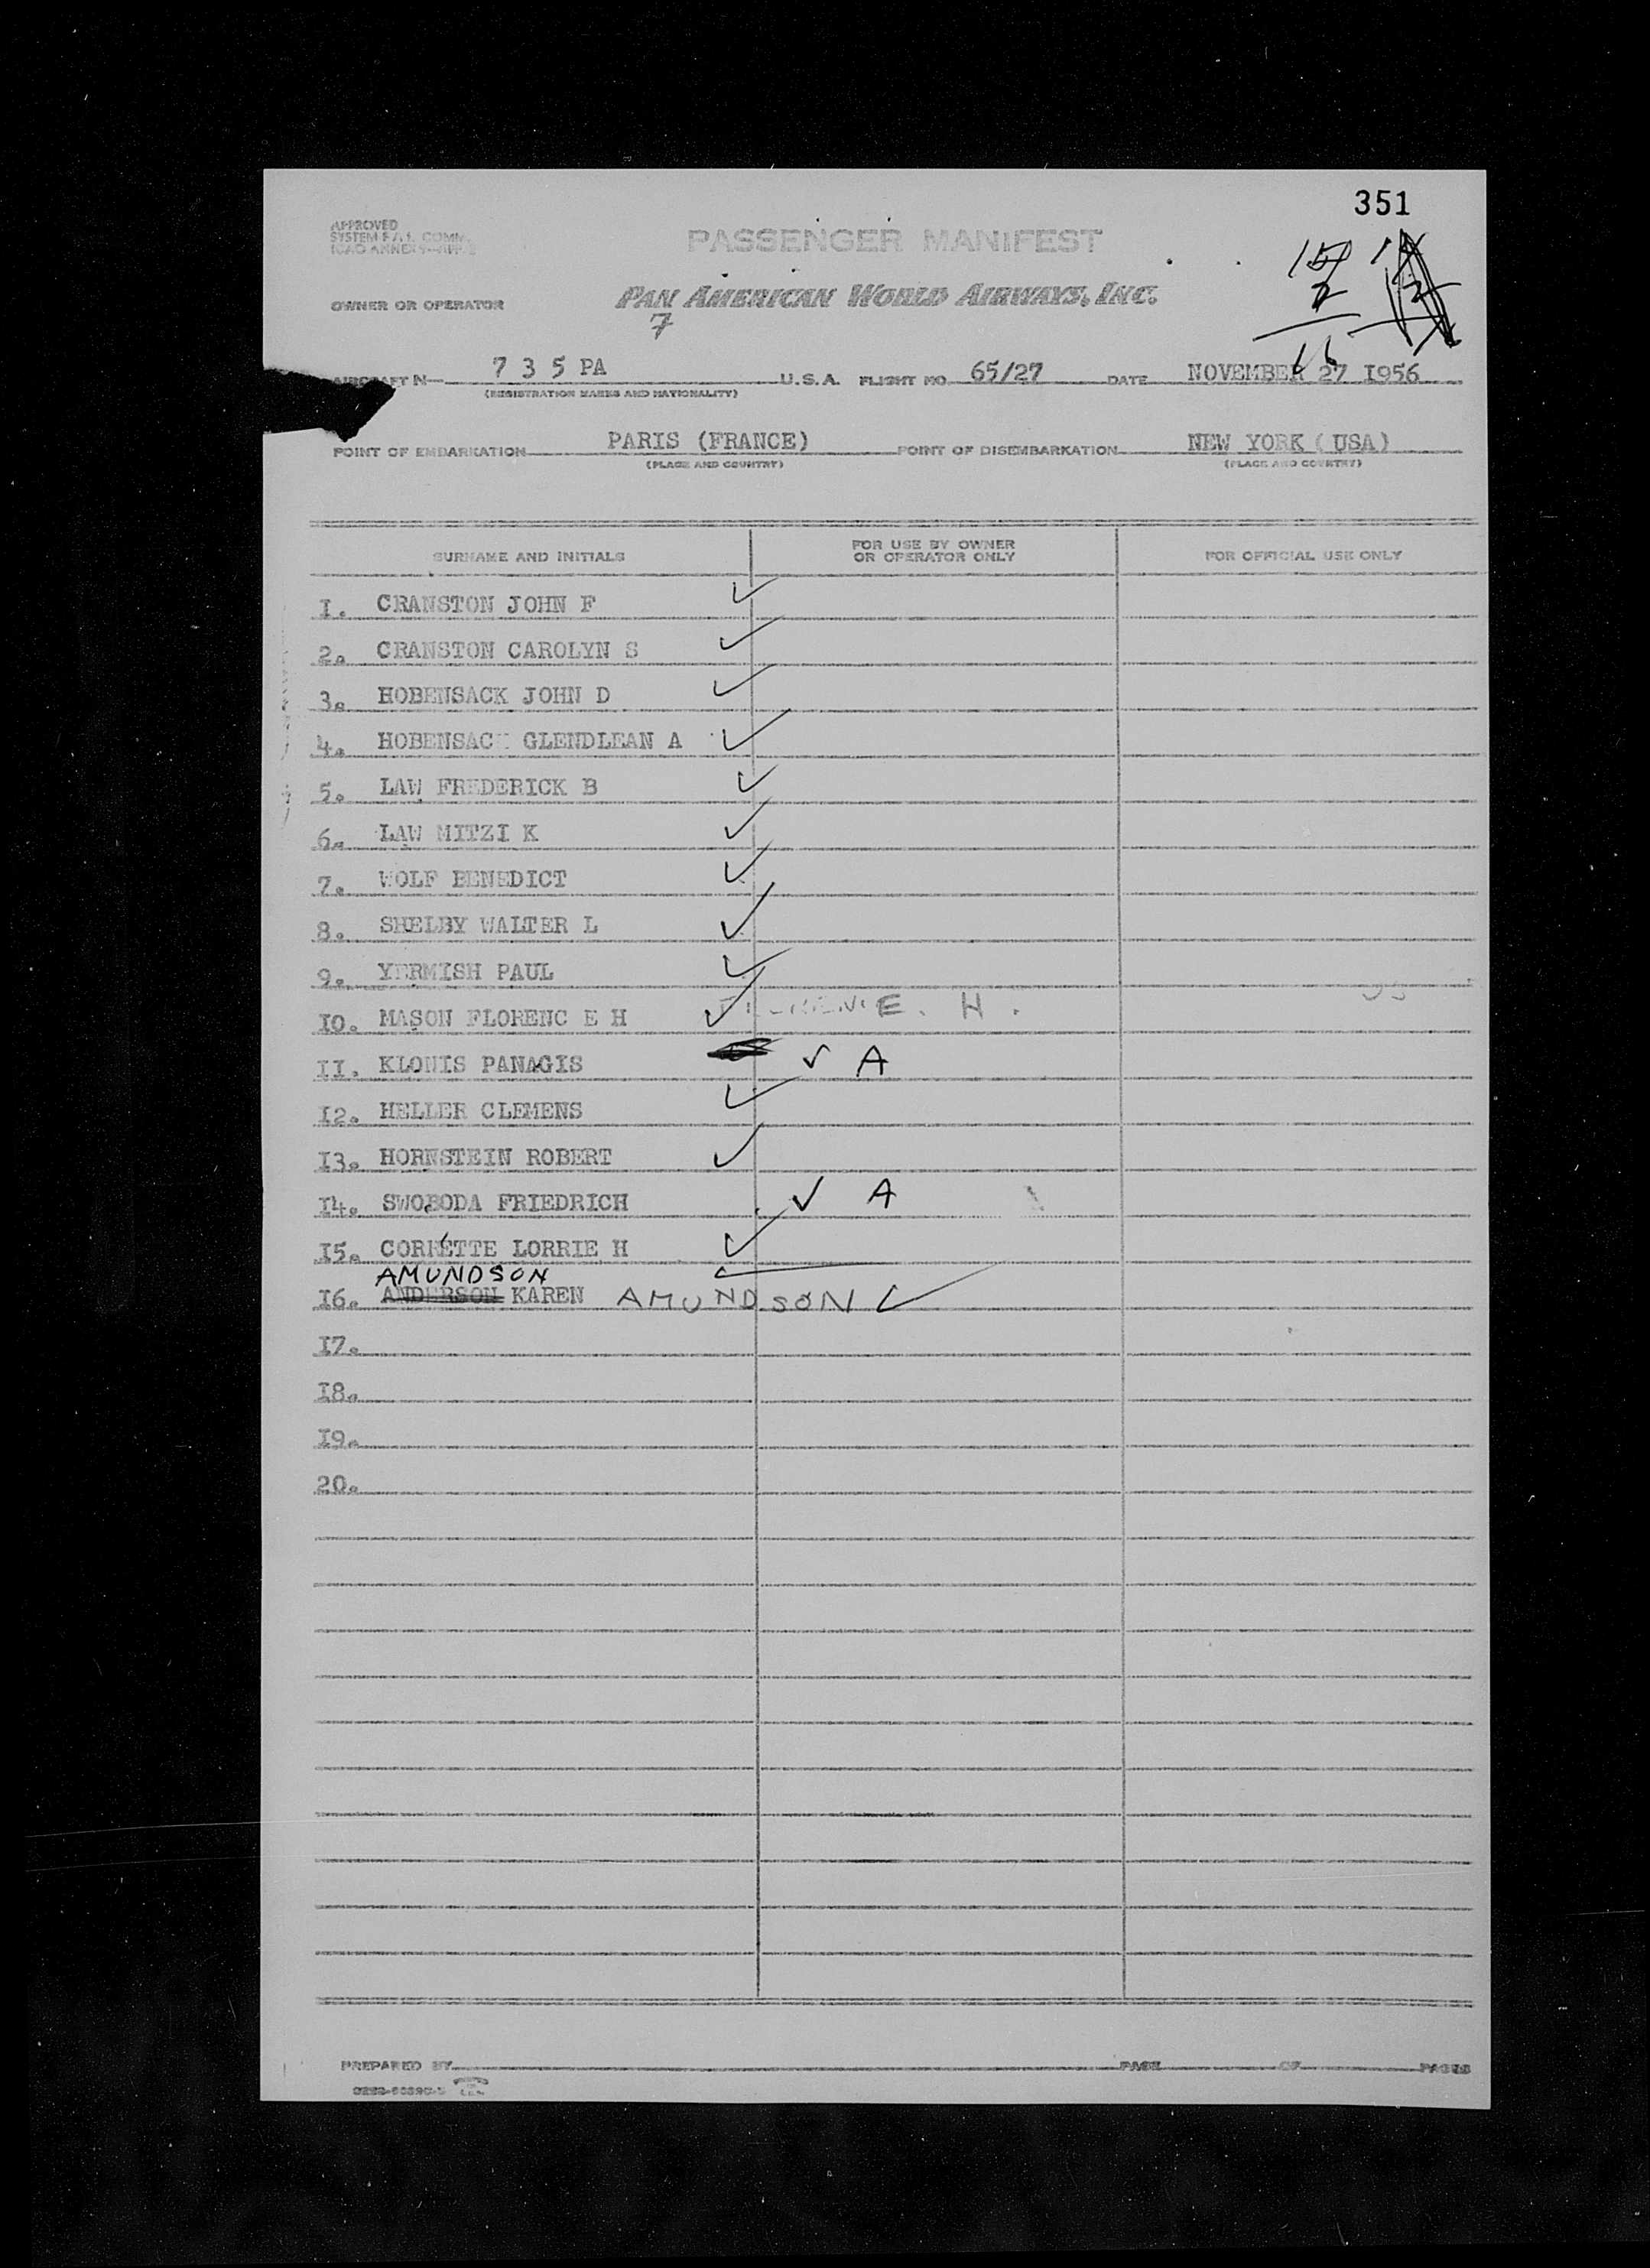 351
APPROVED
SYSTEM F.A.L. COMM.
ICAO ANNEX 9-APP. 2
PASSENGER MANIFEST
OWNER OR OPERATOR PAN AMERICAN WORLD AIRWAYS, INC.
7
16
AIRCRAFT N 7 3 5 PA U.S.A. FLIGHT NO 65/27 DATE NOVEMBER 27 I956
(REGISTRATION MARKS AND NATIONALITY)
POINT OF EMBARKATION PARIS (FRANCE) POINT OF DISEMBARKATION NEW YORK ( USA)
(PLACE AND COUNTRY) (PLACE AND COUNTRY)
SURNAME AND INITIALS FOR USE BY OWNER OR OPERATOR ONLY FOR OFFICIAL USE ONLY
I. CRANSTON JOHN F ✓
2. CRANSTON CAROLYN S ✓
3. HOBENSACK JOHN D ✓
4. HOBENSACK GLENDLEAN A ✓
5. LAW FREDERICK B ✓
6. LAW MITZI K ✓
7. WOLF BENEDICT ✓
8. SHELBY WALTER L ✓
9. YERMISH PAUL ✓
IO. MASON FLORENC E H ✓ E. H.
II. KLONIS PANAGIS ✓ A
I2. HELLER CLEMENS ✓
I3. HORNSTEIN ROBERT ✓
I4. SWOBODA FRIEDRICH ✓ A
I5. CORRETTE LORRIE H ✓
AMUNDSON
I6. ANDERSON KAREN AMUNDSON ✓
I7.
I8.
I9.
20.
PREPARED BY PAGE OF PAGES